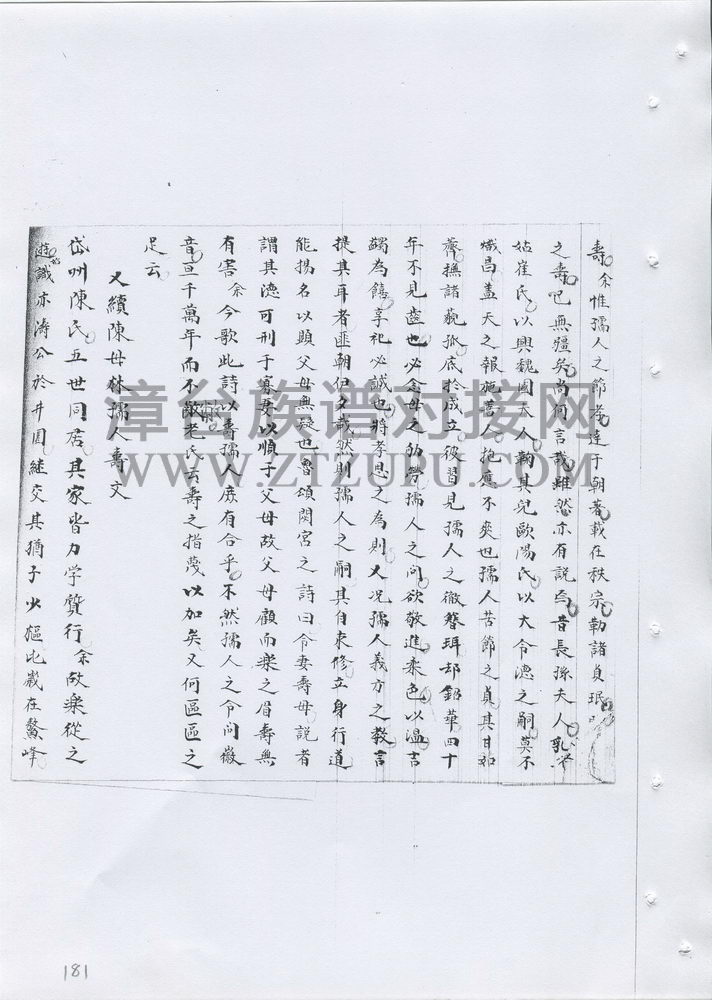 壽余惟孺人之節孝達于朝著載在秩宗勒諸貞珉
之壽已無疆矣尚何言哉雖然亦有說焉昔長孫夫人乳
姑崔氏以興魏國夫人鞠其兒歐陽氏以大令德之嗣莫不
熾昌蓋天之報施善人抱應不爽也孺人苦節之貞其甘如
薺撫諸藐孤底於成立彼習見孺人之徹簪珥却鉛華四十
年不見齒也必念母之劬勞孺人之問欲敬進柔色以溫吉
蠲為饎享祀必誠也將孝思之為則又況孺人義方之教言
提其耳者匪朝伊夕哉然則孺人之嗣其自束修立身行道
能揚名以顯父母無疑也魯頌閟宮之詩曰令妻壽母說者
謂其德可刑于寡妻以順于父母故父母顧而樂之眉壽無
有害余今歌此詩以壽孺人庶有合乎不然孺人之令問徽
音亘千萬年而不敝老氏云壽之指蔑以加矣又何區區之
足云
又續陳母林孺人壽文
岱洲陳氏五世同居其家皆力学質行余故樂從之
遊識亦濤公於井圍継交其猶子少樞比歲在鰲峰
漳台族谱对接网
WWW.ZTZUPU.COM
181